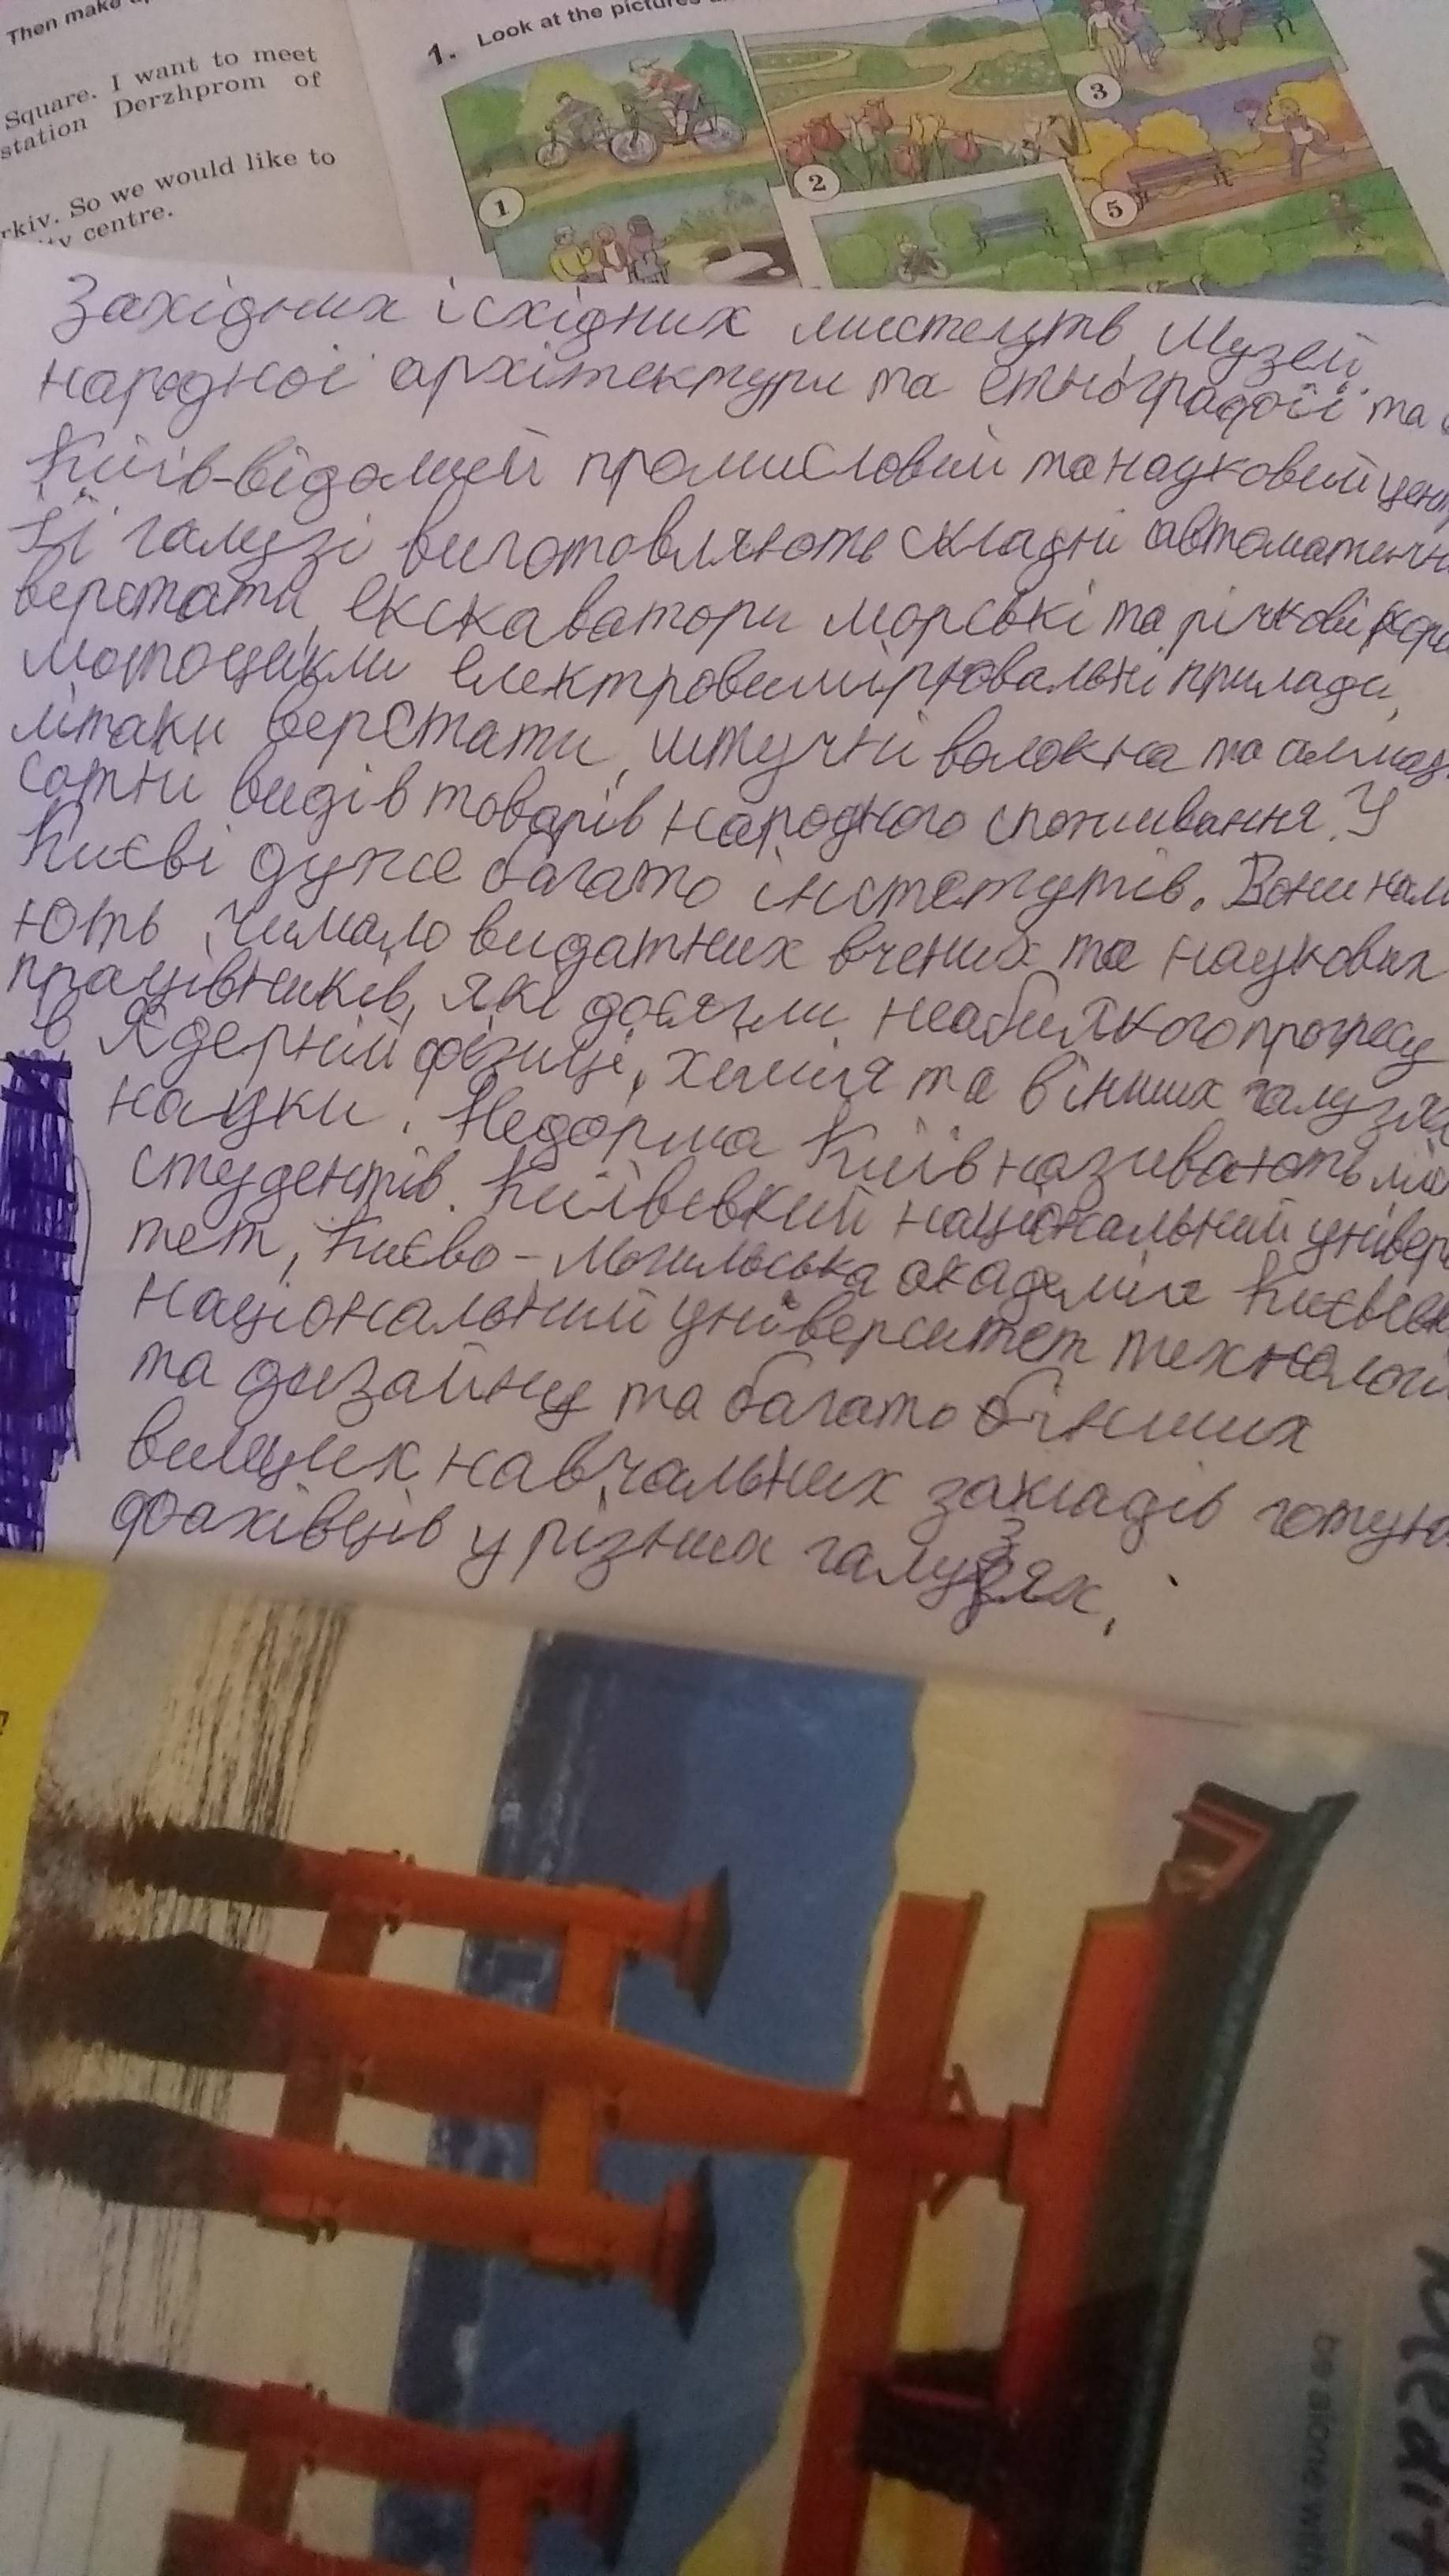 Then make
Square. I want to meet
station Derzhprom of
rkiv. So we would like to
ity centre.
1. Look at the pictures
1
2
3
5
Західних і східних мистецтв, Музей
народної архітектури та етнографії та
Київ-відомий промисловий та науковий цент
Її галузі виготовляють складні автоматичн
верстати, екскаватори морські та річкові кора
мотоцикли електровимірювальні прилади,
літаки верстати, штучні волокна та алмаз
сотні видів товарів народного споживання. У
Києві дуже багато інстетутів. Вони нал
ють чимало видатних вчених та наукових
працівників, які досягли неабиякого прогресу
в Ядерній фізиці, хімія та в інших галузях
науки. Недорма Київ називають мі
студентів. Київський національний універ
тет, Києво-Могильська академія Києвськ
національний університет технологі
та дизайну та багато інших
вищих навчальних закладів готую
фахівців у різних галузях,
be alone with